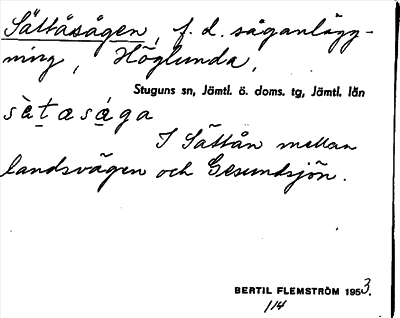 Sättåsågen, f. d. såganlägg-
ning, Höglunda,
Stuguns sn, Jämtl. ö. doms. tg, Jämtl. län
sὰt̲asága
I Sättån mellan
landsvägen och Gesundsjön.
BERTIL FLEMSTRÖM 1953.
1/14